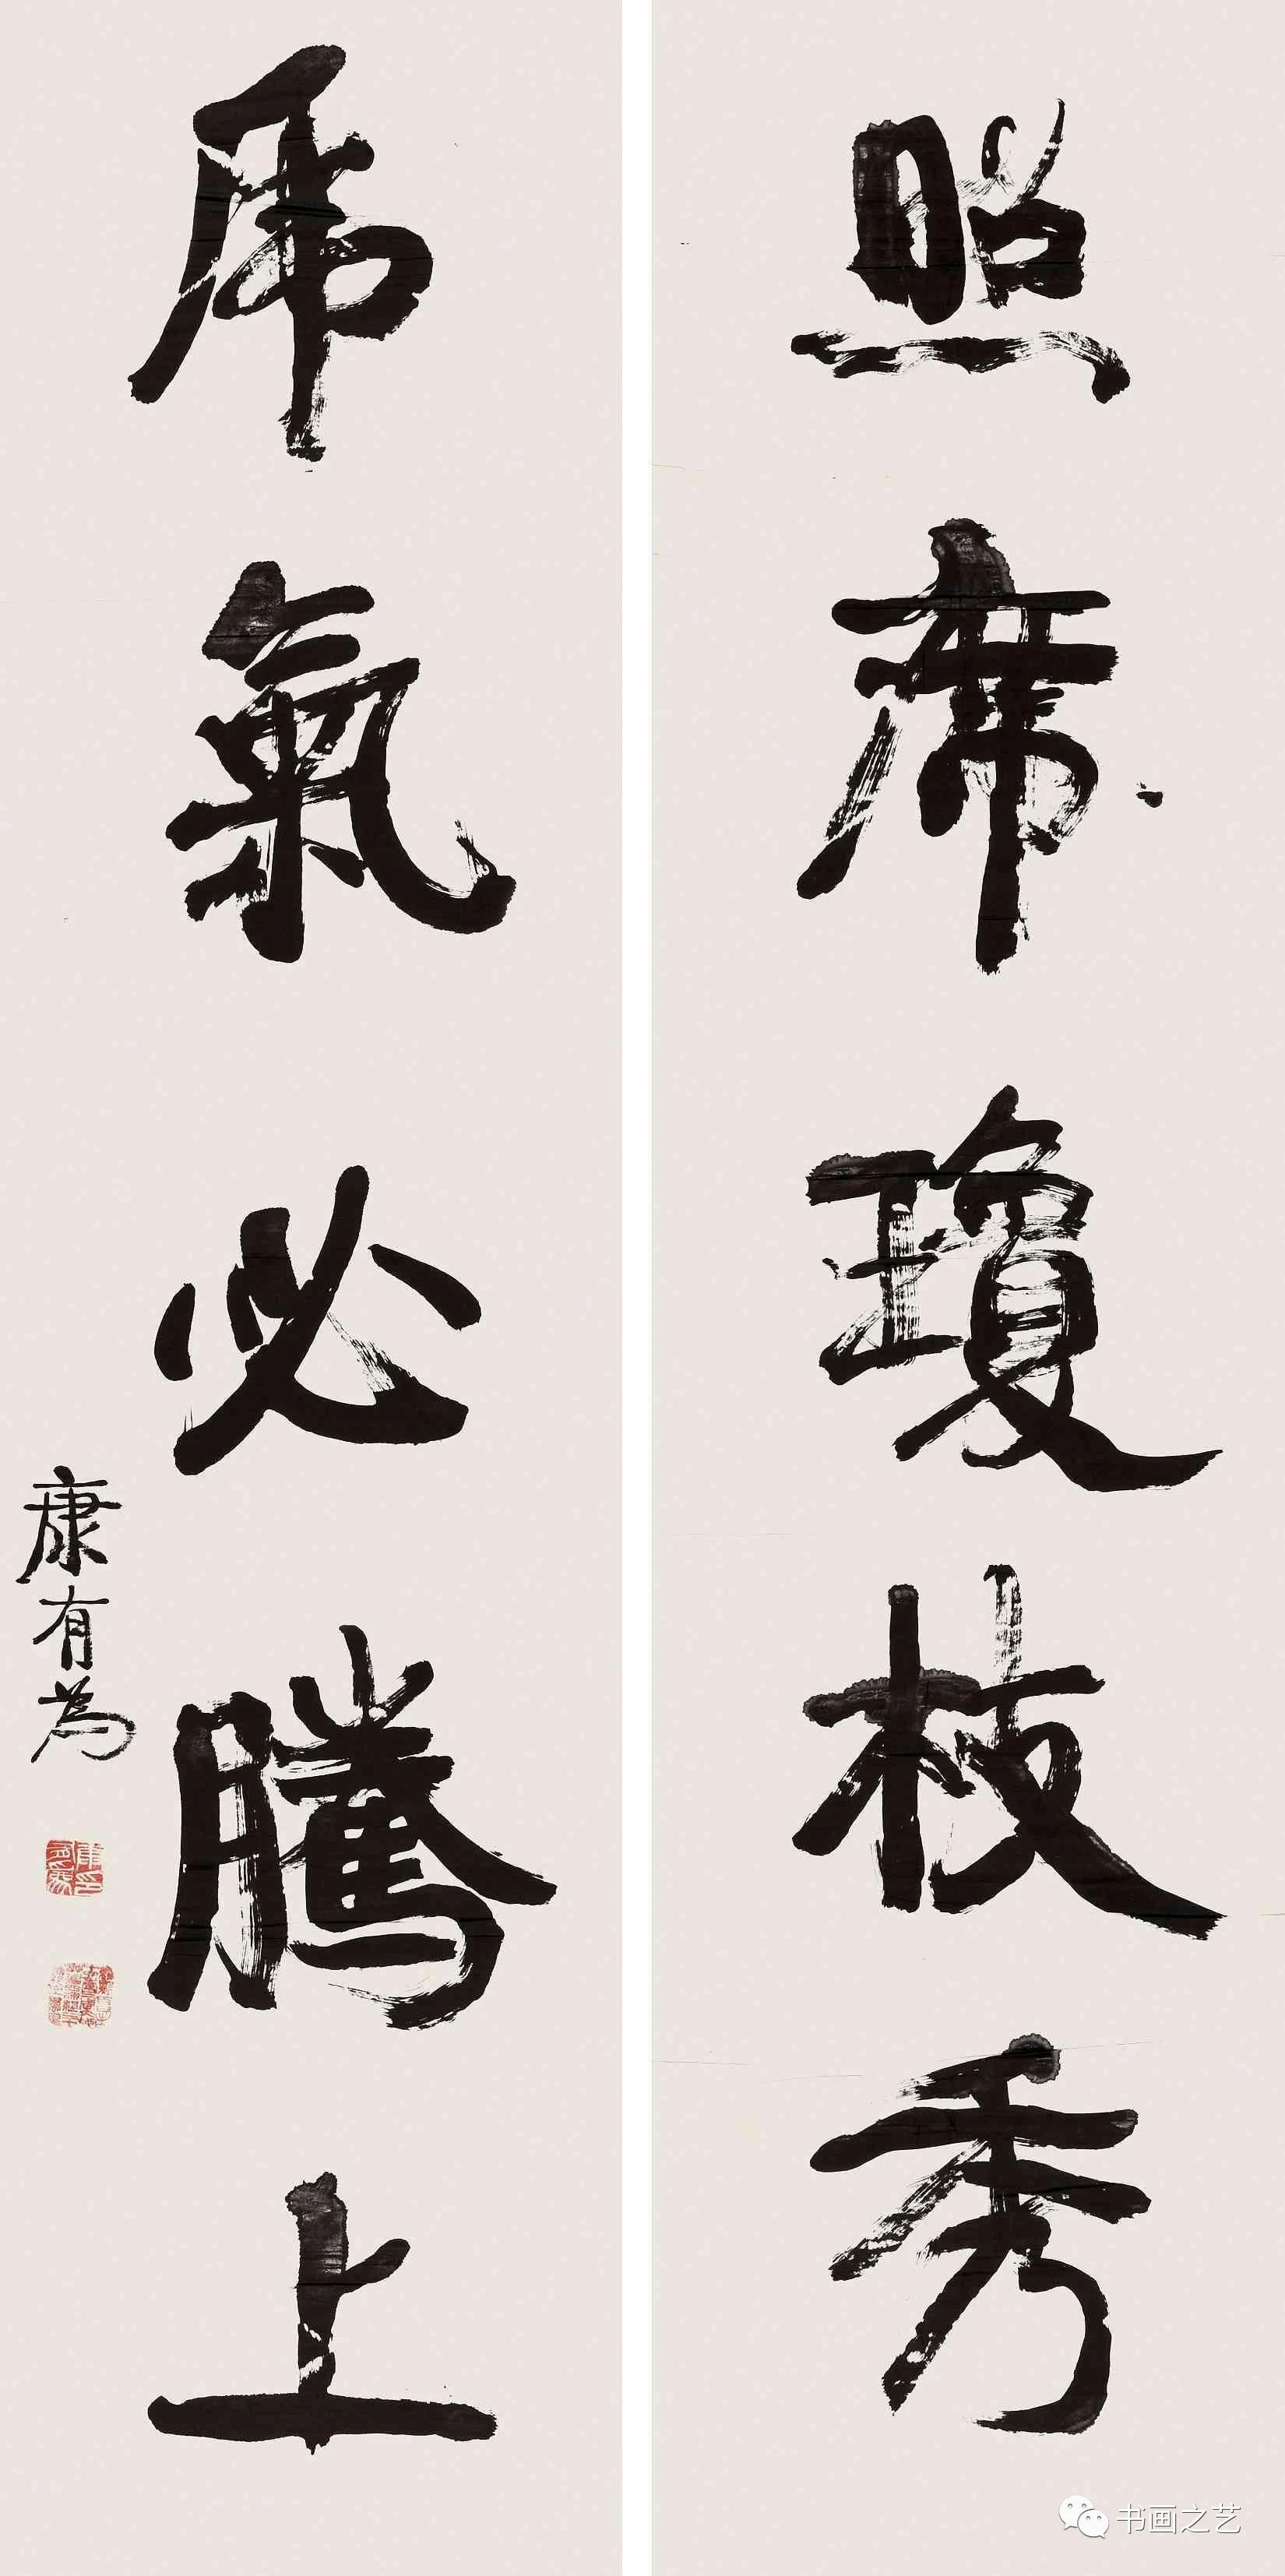 照席瓊枝秀
虎氣必騰上
康有為
书画之艺